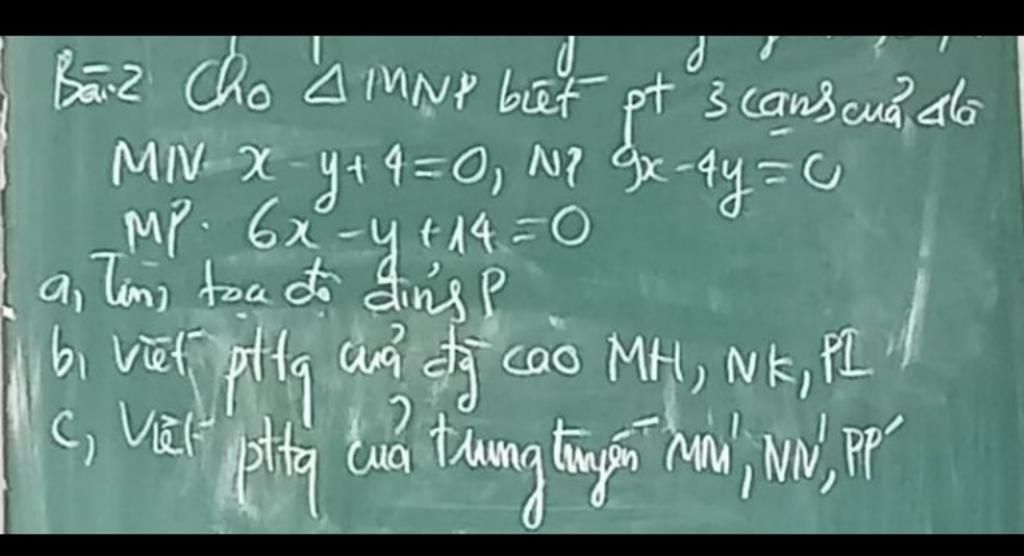 Bài 2 Cho Δ MNP biết pt 3 cạnh của Δ là
MN x - y + 4 = 0, NP 9x - 4y = 0
MP. 6x - y + 14 = 0
a, Tìm toạ độ đỉnh P
b, Viết pttq của đg cao MH, NK, PI
c, Viết pttq của trung tuyến MM', NN', PP'